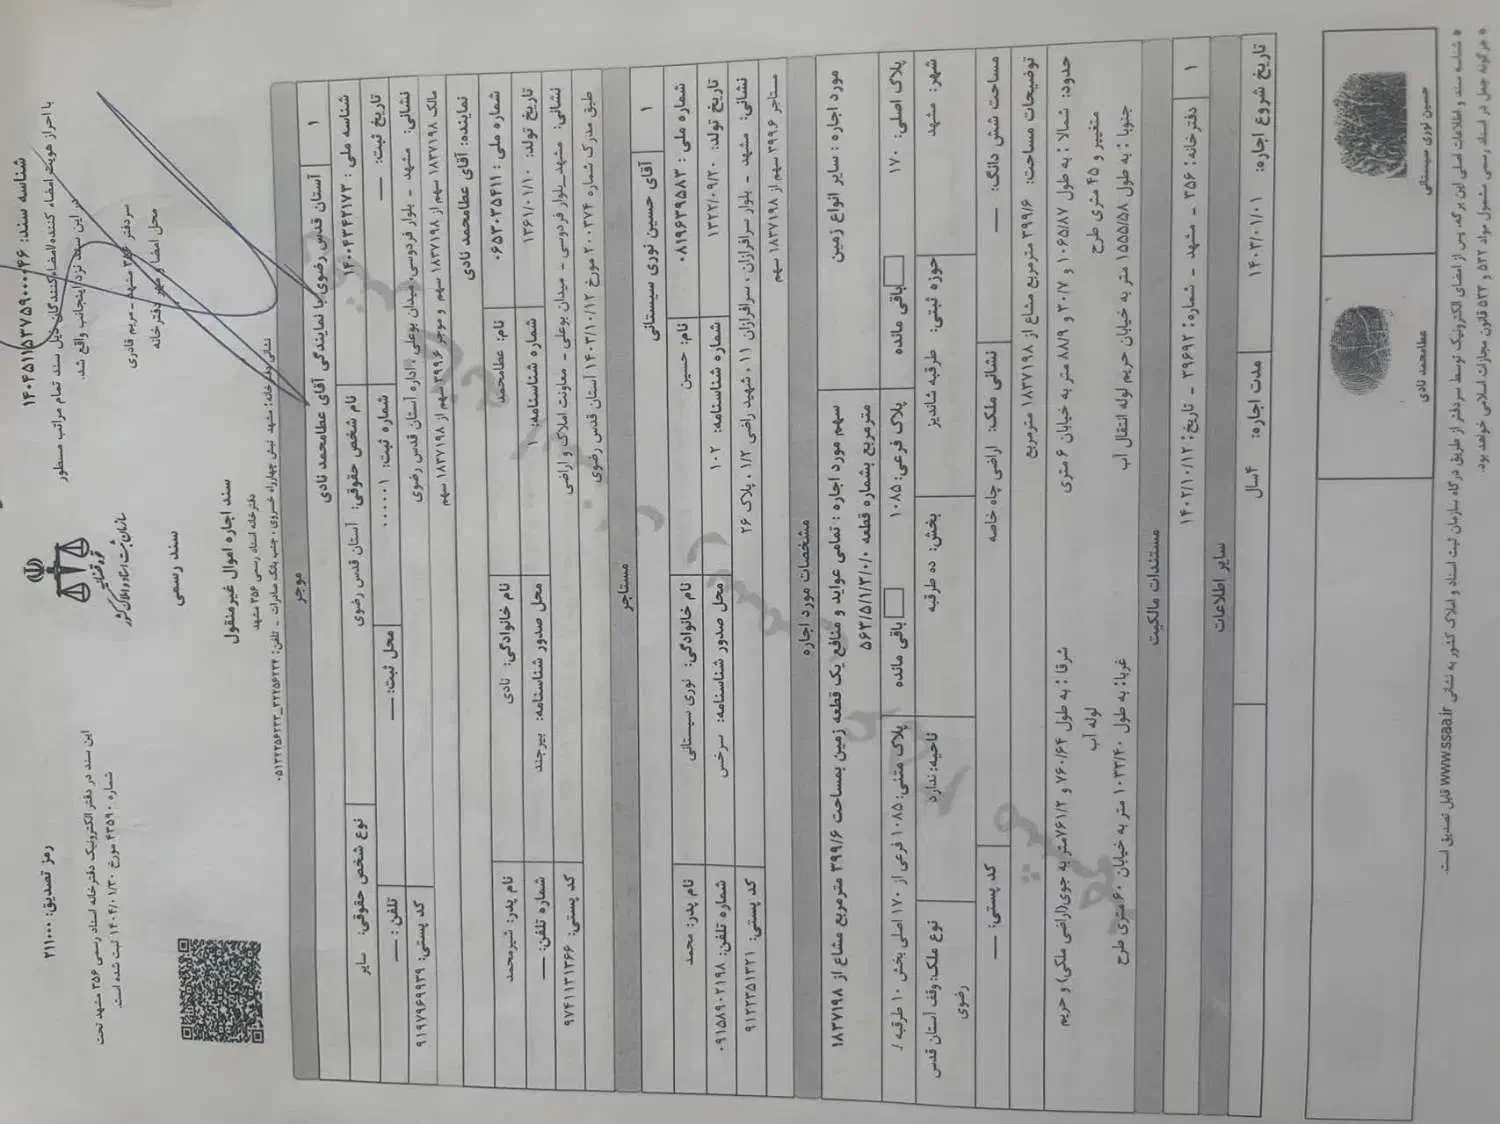 شناسه سند: ۱۴۰۴۵۱۱۵۳۷۵۹۰۰۰۰۴۶
رمز تصدیق: ۲۱۱۰۰۰
با احراز هویت امضاء کننده/امضاءکنندگان ذیل سند تمام مراتب مسطور
در این سند نزد اینجانب واقع شد.
سردفتر ۳۵۶ مشهد - مریم قادری
محل امضا و مهر دفترخانه
قوه قضائیه
سازمان ثبت اسناد و املاک کشور
این سند در دفتر الکترونیک دفترخانه اسناد رسمی ۳۵۶ مشهد تحت
شماره ۴۳۵۹۰ مورخ ۱۴۰۴/۰۱/۳۰ ثبت شده است.
سند رسمی
سند اجاره اموال غیرمنقول
دفترخانه اسناد رسمی ۳۵۶ مشهد
نشانی دفترخانه: مشهد نبش چهارراه خسروی، جنب بانک صادرات - تلفن:
موجر
۱ آستان قدس رضوی با نمایندگی آقای عطامحمد نادی
شناسه ملی: ۱۴۰۰۴۳۴۲۱۷۳ نام شخص حقوقی: آستان قدس رضوی نوع شخص حقوقی: سایر
تاریخ ثبت: — شماره ثبت: ۰۰۰۰۰۱ محل ثبت: — تلفن: —
نشانی: مشهد - بلوار فردوسی، میدان بوعلی، اداره آستان قدس رضوی کد پستی: ۹۱۹۷۹۶۹۹۳۹
مالک ۱۸۳۷۱۹۸ سهم از ۱۸۳۷۱۹۸ سهم و موجر ۳۹۹.۶ سهم از ۱۸۳۷۱۹۸ سهم
نماینده: آقای عطامحمد نادی
شماره ملی: ۰۶۵۳۰۳۵۴۱۱ نام: عطامحمد نام خانوادگی: نادی نام پدر: شیرمحمد
تاریخ تولد: ۱۳۶۱/۰۱/۱۰ شماره شناسنامه: ۱ محل صدور شناسنامه: بیرجند شماره تلفن: —
نشانی: مشهد_بلوار فردوسی - میدان بوعلی - معاونت املاک و اراضی کد پستی: ۹۷۴۱۱۳۱۳۶۶
طبق مدرک شماره ۲۰۰۳۷۴ مورخ ۱۴۰۳/۱۰/۱۲ آستان قدس رضوی
مستاجر
۱ آقای حسین نوری سیستانی
شماره ملی: ۰۸۱۹۶۳۹۵۸۳ نام: حسین نام خانوادگی: نوری سیستانی نام پدر: محمد
تاریخ تولد: ۱۳۲۲/۰۹/۲۰ شماره شناسنامه: ۱۰۲ محل صدور شناسنامه: سرخس شماره تلفن: ۰۹۱۵۸۹۰۲۱۹۸
نشانی: مشهد - بلوار سرافرازان، سرافرازان ۱۱، شهید راضی ۱/۲، پلاک ۲۶ کد پستی: ۹۱۲۲۳۵۱۳۲۱
مستاجر ۳۹۹.۶ سهم از ۱۸۳۷۱۹۸ سهم
مشخصات مورد اجاره
مورد اجاره: سایر انواع زمین سهم مورد اجاره: تمامی عواید و منافع یک قطعه زمین بمساحت ۳۹۹/۶ مترمربع مشاع از ۱۸۳۷۱۹۸
مترمربع بشماره قطعه ۵۶۳/۵/۱/۳/۰/۰
پلاک اصلی: ۱۷۰ باقی مانده پلاک فرعی: ۱۰۸۵ باقی مانده پلاک متنی: ۱۰۸۵ فرعی از ۱۷۰ اصلی بخش ۱۰ طرقبه /
شهر: مشهد حوزه ثبتی: طرقبه شاندیز بخش: ده طرقبه ناحیه: ندارد نوع ملک: وقف آستان قدس
رضوی
مساحت شش دانگ: — نشانی ملک: اراضی چاه خاصه کد پستی: —
توضیحات مساحت: ۳۹۹/۶ مترمربع مشاع از ۱۸۳۷۱۹۸ مترمربع
حدود: شمالا: به طول ۱۰۶۵/۸۷ و ۲۰/۷ و ۸۸/۹ متر به خیابان ۶ متری
متغییر و ۴۵ متری طرح
شرقا: به طول ۷۶۰/۶۴ و ۷۶۱/۲متر به جوی(اراضی ملکی) و حریم
لوله آب
جنوبا: به طول ۱۵۵۵/۵۸ متر به خیابان حریم لوله انتقال آب
غربا: به طول ۱۰۳۳/۴۰ متر به خیابان ۶۰متری طرح
مستندات مالکیت
۱ دفترخانه: ۳۵۶ - مشهد - شماره: ۳۹۶۹۲ - تاریخ: ۱۴۰۲/۱۰/۱۲
سایر اطلاعات
تاریخ شروع اجاره: ۱۴۰۳/۰۱/۰۱ مدت اجاره: ۴سال
حسین نوری سیستانی
عطامحمد نادی
* شناسه سند و اطلاعات اصلی این برگه، پس از امضای الکترونیک توسط سردفتر از طریق درگاه سازمان ثبت اسناد و املاک کشور به نشانی www.ssaa.ir قابل تصدیق است.
* هرگونه جعل در اسناد رسمی مشمول مواد ۵۳۲ و ۵۳۳ قانون مجازات اسلامی خواهد بود.